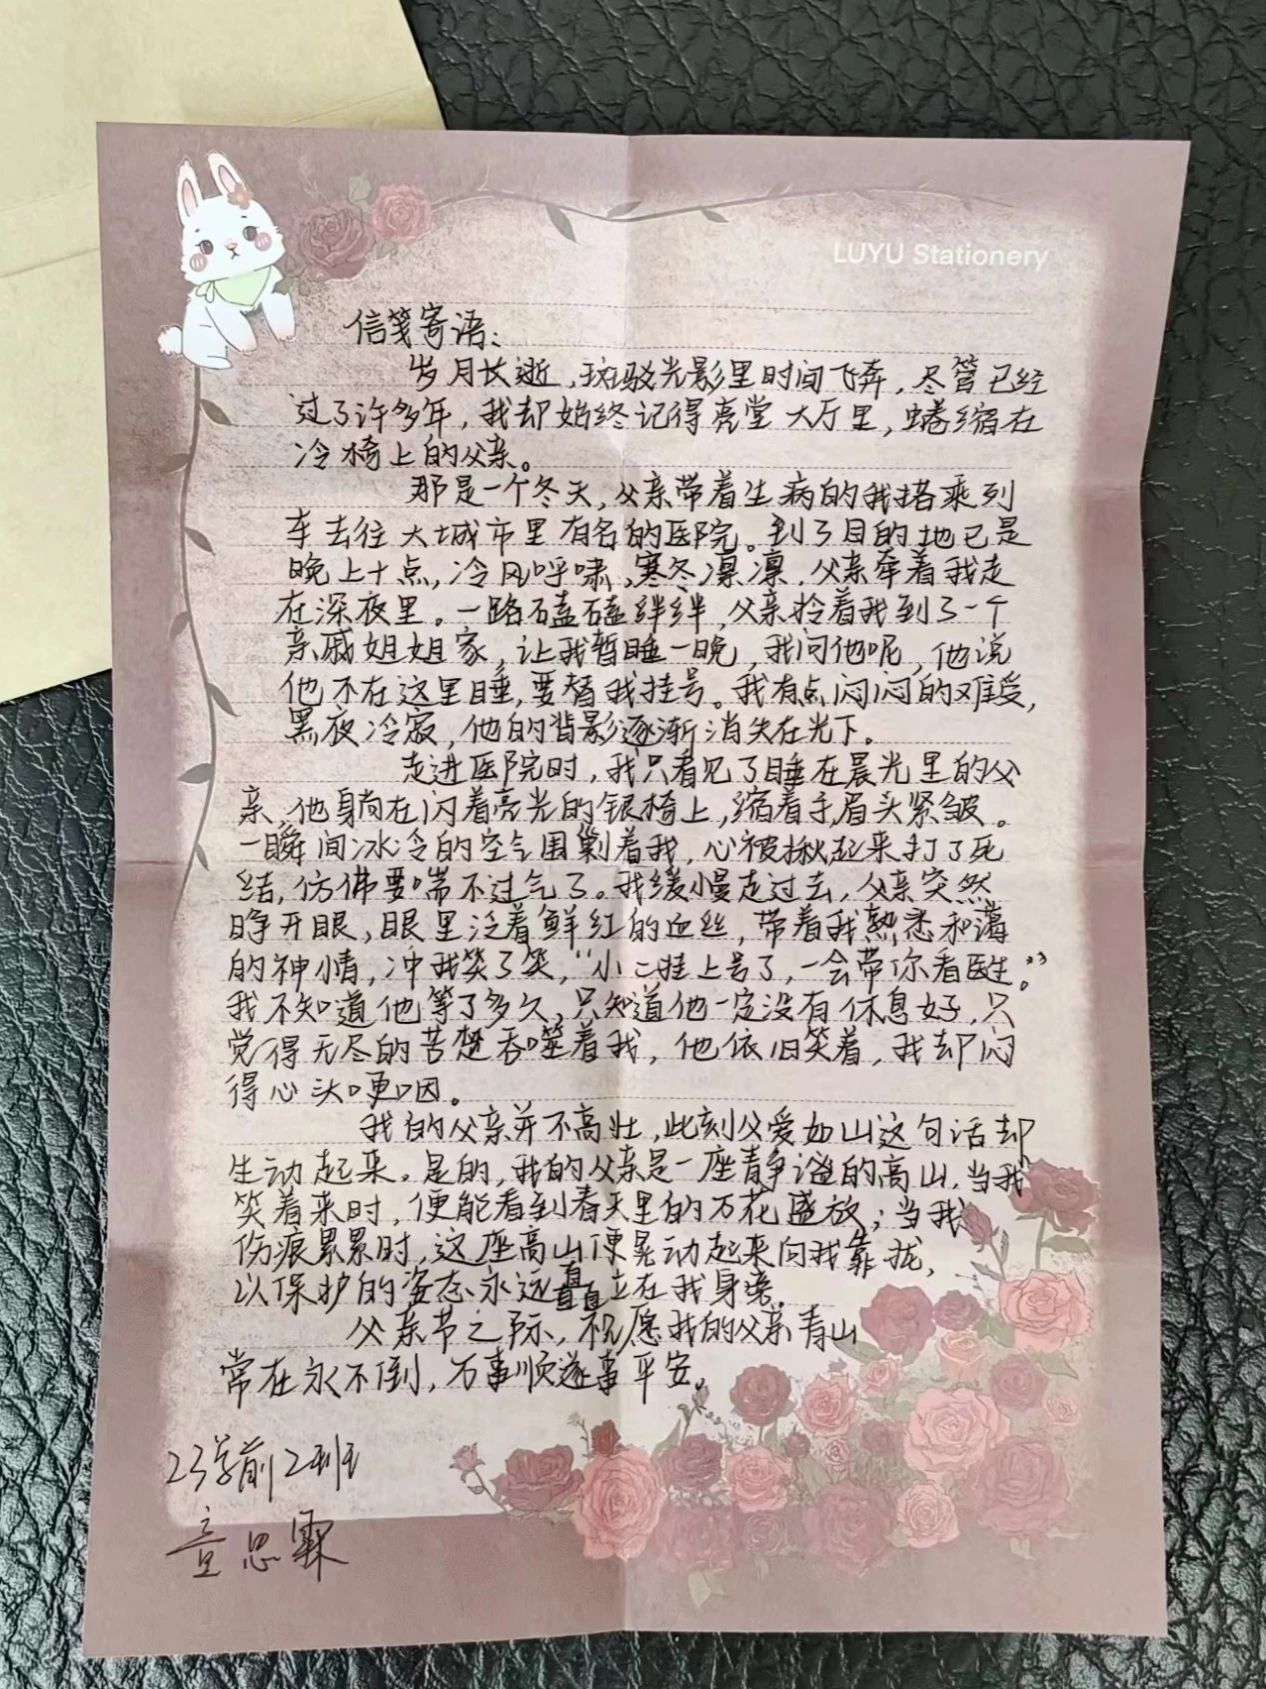 LUYU Stationery
信笺寄语:
岁月长逝,斑驳光影里时间飞奔,尽管已经
过了许多年,我却始终记得亮堂大厅里,蜷缩在
冷椅上的父亲。
那是一个冬天,父亲带着生病的我搭乘列
车去往大城市里有名的医院。到了目的地已是
晚上十点,冷风呼啸,寒冬凛凛,父亲牵着我走
在深夜里。一路磕磕绊绊,父亲拎着我到了一个
亲戚姐姐家,让我暂睡一晚,我问他呢,他说
他不在这里睡,要替我挂号。我有点闷闷的难受,
黑夜冷寂,他的背影逐渐消失在光下。
走进医院时,我只看见了睡在晨光里的父
亲,他躺在闪着亮光的银椅上,缩着手,眉头紧皱。
一瞬间冰冷的空气围剿着我,心被揪起来打了死
结,仿佛要喘不过气了。我缓慢走过去,父亲突然
睁开眼,眼里泛着鲜红的血丝,带着我熟悉和蔼
的神情,冲我笑了笑,“小二娃上号了,一会带你看医生。”
我不知道他等了多久,只知道他一定没有休息好,只
觉得无尽的苦楚吞噬着我,他依旧笑着,我却闷
得心头哽咽。
我的父亲并不高壮,此刻父爱如山这句话却
生动起来。是的,我的父亲是一座静谧的高山,当我
笑着来时,便能看到春天里的万花盛放;当我
伤痕累累时,这座高山便晃动起来向我靠拢,
以保护的姿态永远矗立在我身旁。
父亲节之际,祝愿我的父亲青山
常在永不倒,万事顺遂事平安。
23学前2班
童思霖